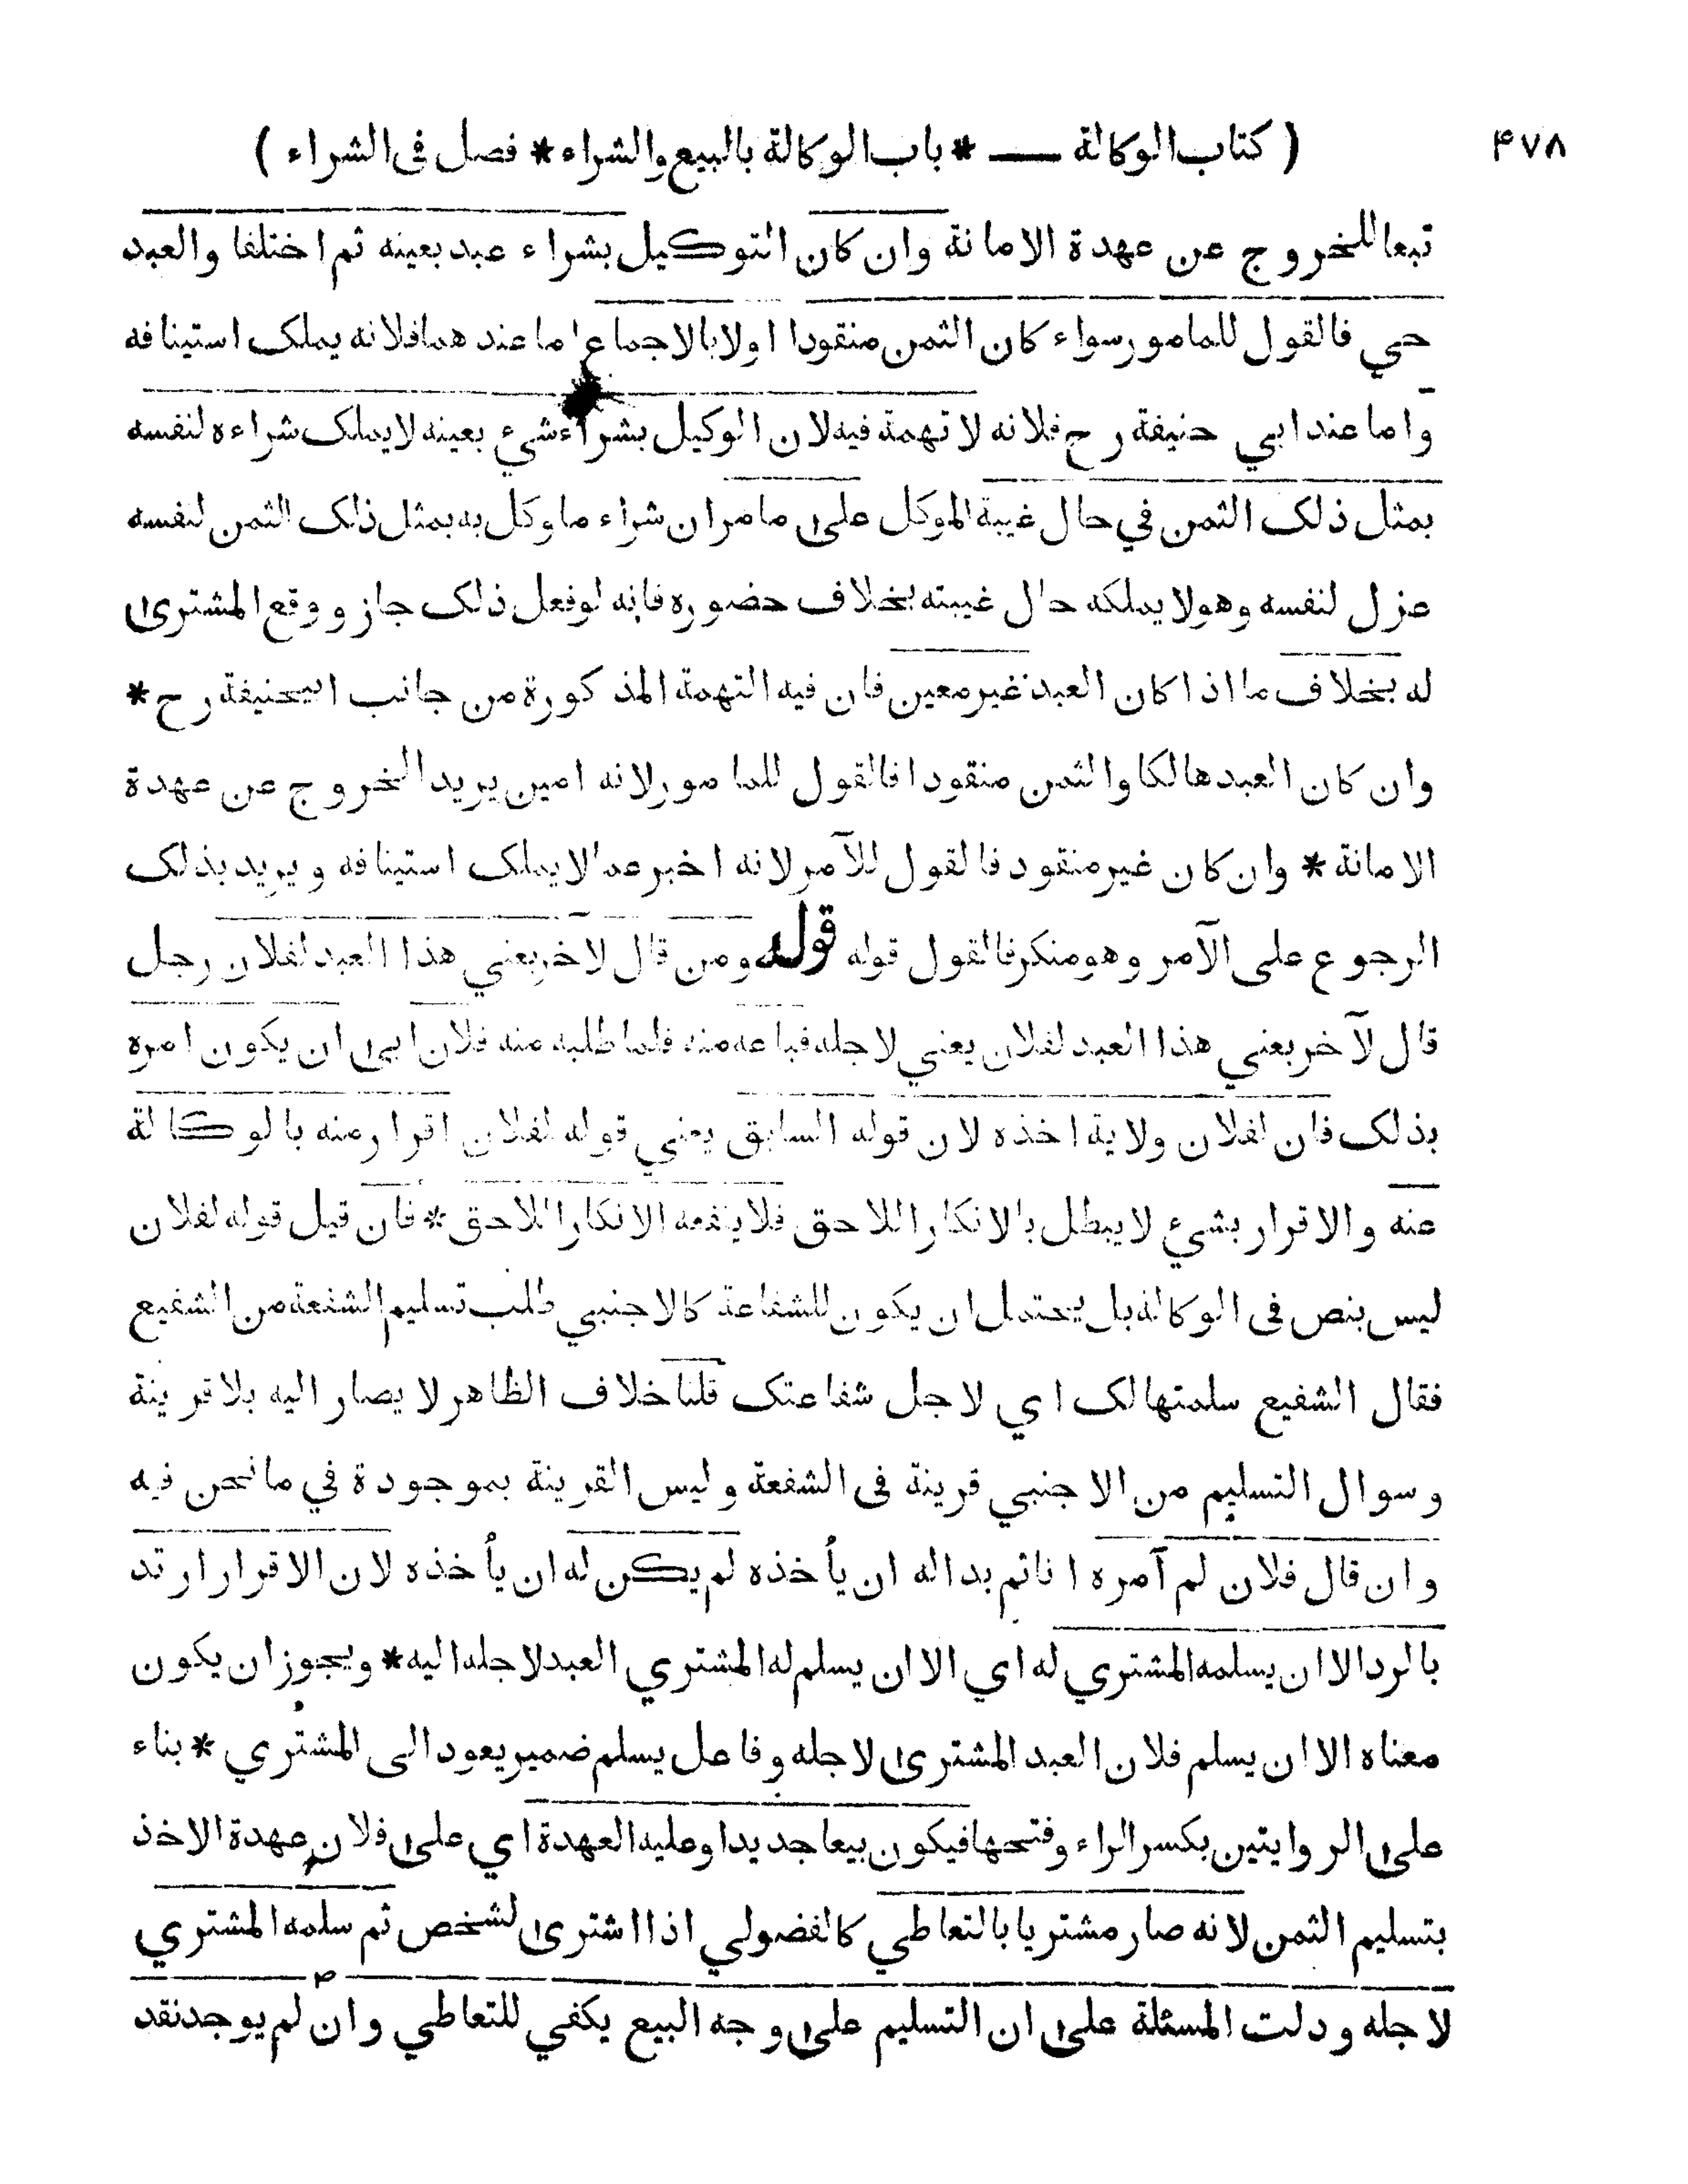 ۴۷۸
( كتاب الوكالة — * باب الوكالة بالبيع والشراء * فصل فى الشراء )
تبعا للخروج عن عهدة الامانة وان كان التوكيل بشراء عبد بعينه ثم اختلفا والعبد
حي فالقول للمامور سواء كان الثمن منقودا اولا بالاجماع اما عندهما فلانه يملك استينافه
واما عند ابي حنيفة رح فلانه لا تهمة فيه لان الوكيل بشراء شيء بعينه لا يملك شراءه لنفسه
بمثل ذلك الثمن في حال غيبة الموكل على ما مر ان شراء ما وكل به بمثل ذلك الثمن لنفسه
عزل لنفسه وهو لا يملكه حال غيبته بخلاف حضوره فانه لو فعل ذلك جاز ووقع المشترى
له بخلاف ما اذا كان العبد غير معين فان فيه التهمة المذكورة من جانب ابيحنيفة رح *
وان كان العبد هالكا والثمن منقودا فالقول للمامور لانه امين يريد الخروج عن عهدة
الامانة * وان كان غير منقود فالقول للآمر لانه اخبر عما لا يملك استينافه ويريد بذلك
الرجوع على الآمر وهو منكر فالقول قوله قوله ومن قال لآخر بعني هذا العبد لفلان رجل
قال لآخر بعني هذا العبد لفلان يعني لاجله فباعه منه فلما طلبه منه فلان ابى ان يكون امره
بذلك فان لفلان ولاية اخذه لان قوله السابق يعني قوله لفلان اقرار منه بالوكالة
عنه والاقرار بشيء لا يبطل بالانكار اللاحق فلا ينفعه الانكار اللاحق * فان قيل قوله لفلان
ليس بنص فى الوكالة بل يحتمل ان يكون للشفاعة كالاجنبي طلب تسليم الشفعة من الشفيع
فقال الشفيع سلمتها لك اي لاجل شفاعتك قلنا خلاف الظاهر لا يصار اليه بلا قرينة
وسوال التسليم من الاجنبي قرينة فى الشفعة وليس القرينة بموجودة في ما نحن فيه
وان قال فلان لم آمره انا ثم بدا له ان يأخذه لم يكن له ان يأخذه لان الاقرار ارتد
بالرد الا ان يسلمه المشتري له اي الا ان يسلم له المشتري العبد لاجله اليه * ويجوز ان يكون
معناه الا ان يسلم فلان العبد المشترى لاجله وفاعل يسلم ضمير يعود الى المشتري * بناء
على الروايتين بكسر الراء وفتحها فيكون بيعا جديدا وعليه العهدة اي على فلان عهدة الاخذ
بتسليم الثمن لانه صار مشتريا بالتعاطي كالفضولي اذا اشترى لشخص ثم سلمه المشتري
لاجله ودلت المسئلة على ان التسليم على وجه البيع يكفي للتعاطي وان لم يوجد نقد